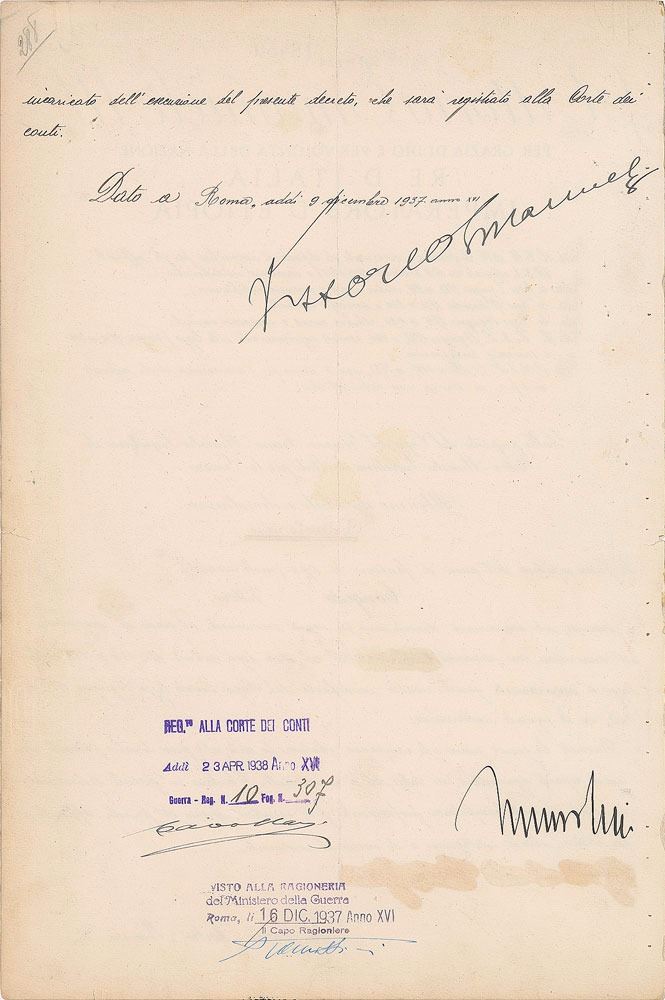 288
incaricato dell' esecuzione del presente decreto, che sarà registrato alla Corte dei
conti.
Dato a Roma, addì 9 dicembre 1937 anno XVI
Vittorio Emanuele
REG.TO ALLA CORTE DEI CONTI
Addì 23 APR. 1938 Anno XVI
Guerra - Reg. N. 10 Fog. N. 307
Mussolini
VISTO ALLA RAGIONERIA
del Ministero della Guerra
Roma, li 16 DIC. 1937 Anno XVI
Il Capo Ragioniere